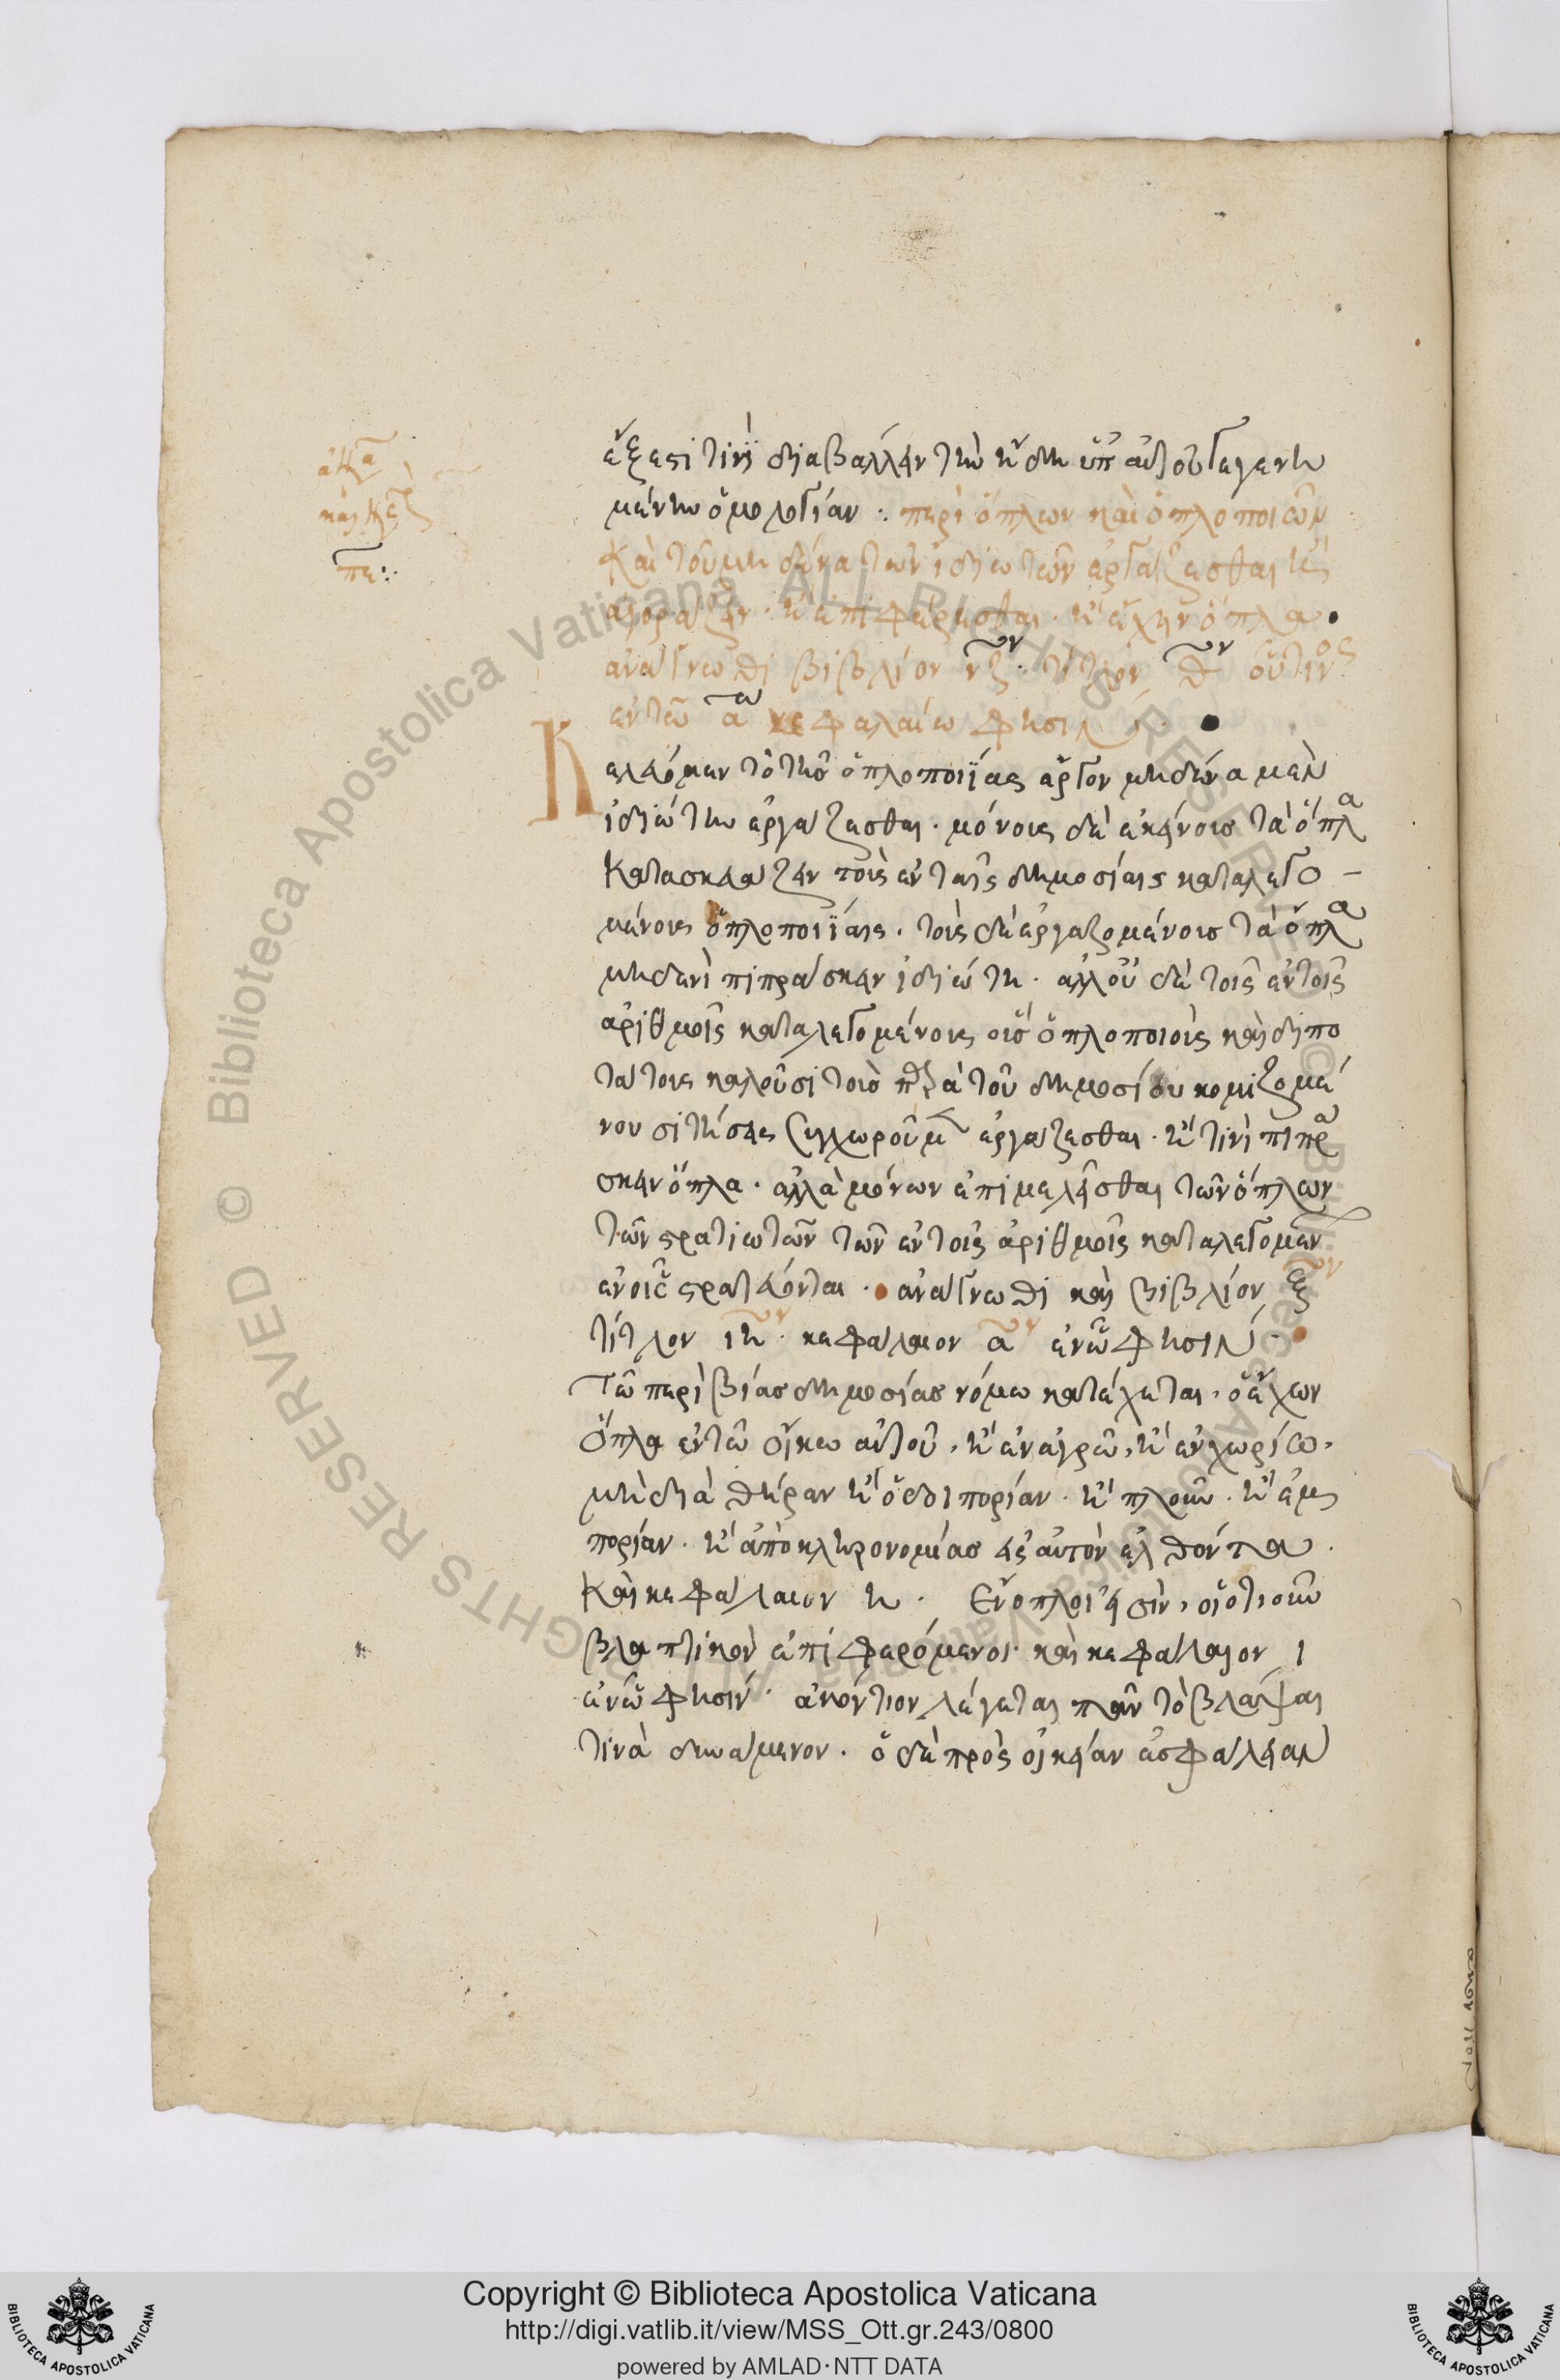 ἔξεστι τινὶ διαβάλλειν τὴν ἤδη ὑπ αὐτοῦ γεγενη
μένην ὁμολογίαν : περὶ ὅπλων καὶ ὁπλοποιῶν
Καὶ τοῦ μηδένα τῶν ἰδιωτῶν ἐργάζεσθαι ἢ
ἀγοράζειν · ἢ ἐπιφέρεσθαι · ἢ ἔχειν ὅπλα ·
ἀνάγνωθι βιβλίον νζον · τίτλον θον οὗτινος
ἐν τῶ αω κεφαλαίω φησίν
Κελεύομεν τὸ τῆς ὁπλοποιΐας ἔργον μηδένα μὲν
ἰδιώτην ἐργάζεσθαι · μόνοις δὲ ἐκείνοις τὰ ὅπλα
κατασκευάζειν τοῖς ἐν ταῖς δημοσίαις καταλεγο -
μένοις ὁπλοποιΐαις · τοῖς δὲ ἐργαζομένοις τὰ ὅπλα
μηδενὶ πιπράσκειν ἰδιώτη · ἀλλ οὐ δὲ τοῖς ἐν τοῖς
ἀριθμοῖς καταλεγομένοις οἷς ὁπλοποιοὶς καὶ διπο
τάτοις καλοῦσι τοῖς παρὰ τοῦ δημοσίου κομιζομέ
νου σιτήσεις συγχωροῦμεν ἐργάζεσθαι · ἢ τινὶ πιπρά
σκειν ὅπλα · ἀλλὰ μόνων ἐπιμελεῖσθαι τῶν ὅπλων
τῶν στρατιωτῶν τῶν ἐν τοῖς ἀριθμοῖς καταλεγομένων
ἐν οἷς στρατεύονται · ἀνάγνωθι καὶ βιβλίον ξον
τίτλον ιη · κεφάλαιον αον ἐν ὧ φησίν ·
Τῶ περὶ βίας δημοσίας νόμω κατέχεται, ὁ ἔχων
ὅπλα ἐν τῶ οἴκω αὐτοῦ, ἢ ἐν ἀγρῶ, ἢ ἐν χωρίω,
μὴ διὰ θήραν ἢ ὁδοιπορίαν · ἢ πλοῦν · ἢ ἐμ
πορίαν · ἢ ἀπὸ κληρονομίας εἰς αὐτὸν ἐλθόντα ·
Καὶ κεφάλαιον η · Ἔνοπλοι εἰσίν, οἱ ὁτιοῦν
βλαπτικὸν ἐπιφερόμενοι · καὶ κεφάλαιον ι
ἐν ὧ φησίν · ἀκόντιον λέγεται πᾶν τὸ βλάψαι
τινὰ δυνάμενον · ὁ δὲ πρὸς οἰκείαν ἀσφάλειαν
Copyright © Biblioteca Apostolica Vaticana
http://digi.vatlib.it/view/MSS_Ott.gr.243/0800
powered by AMLAD·NTT DATA